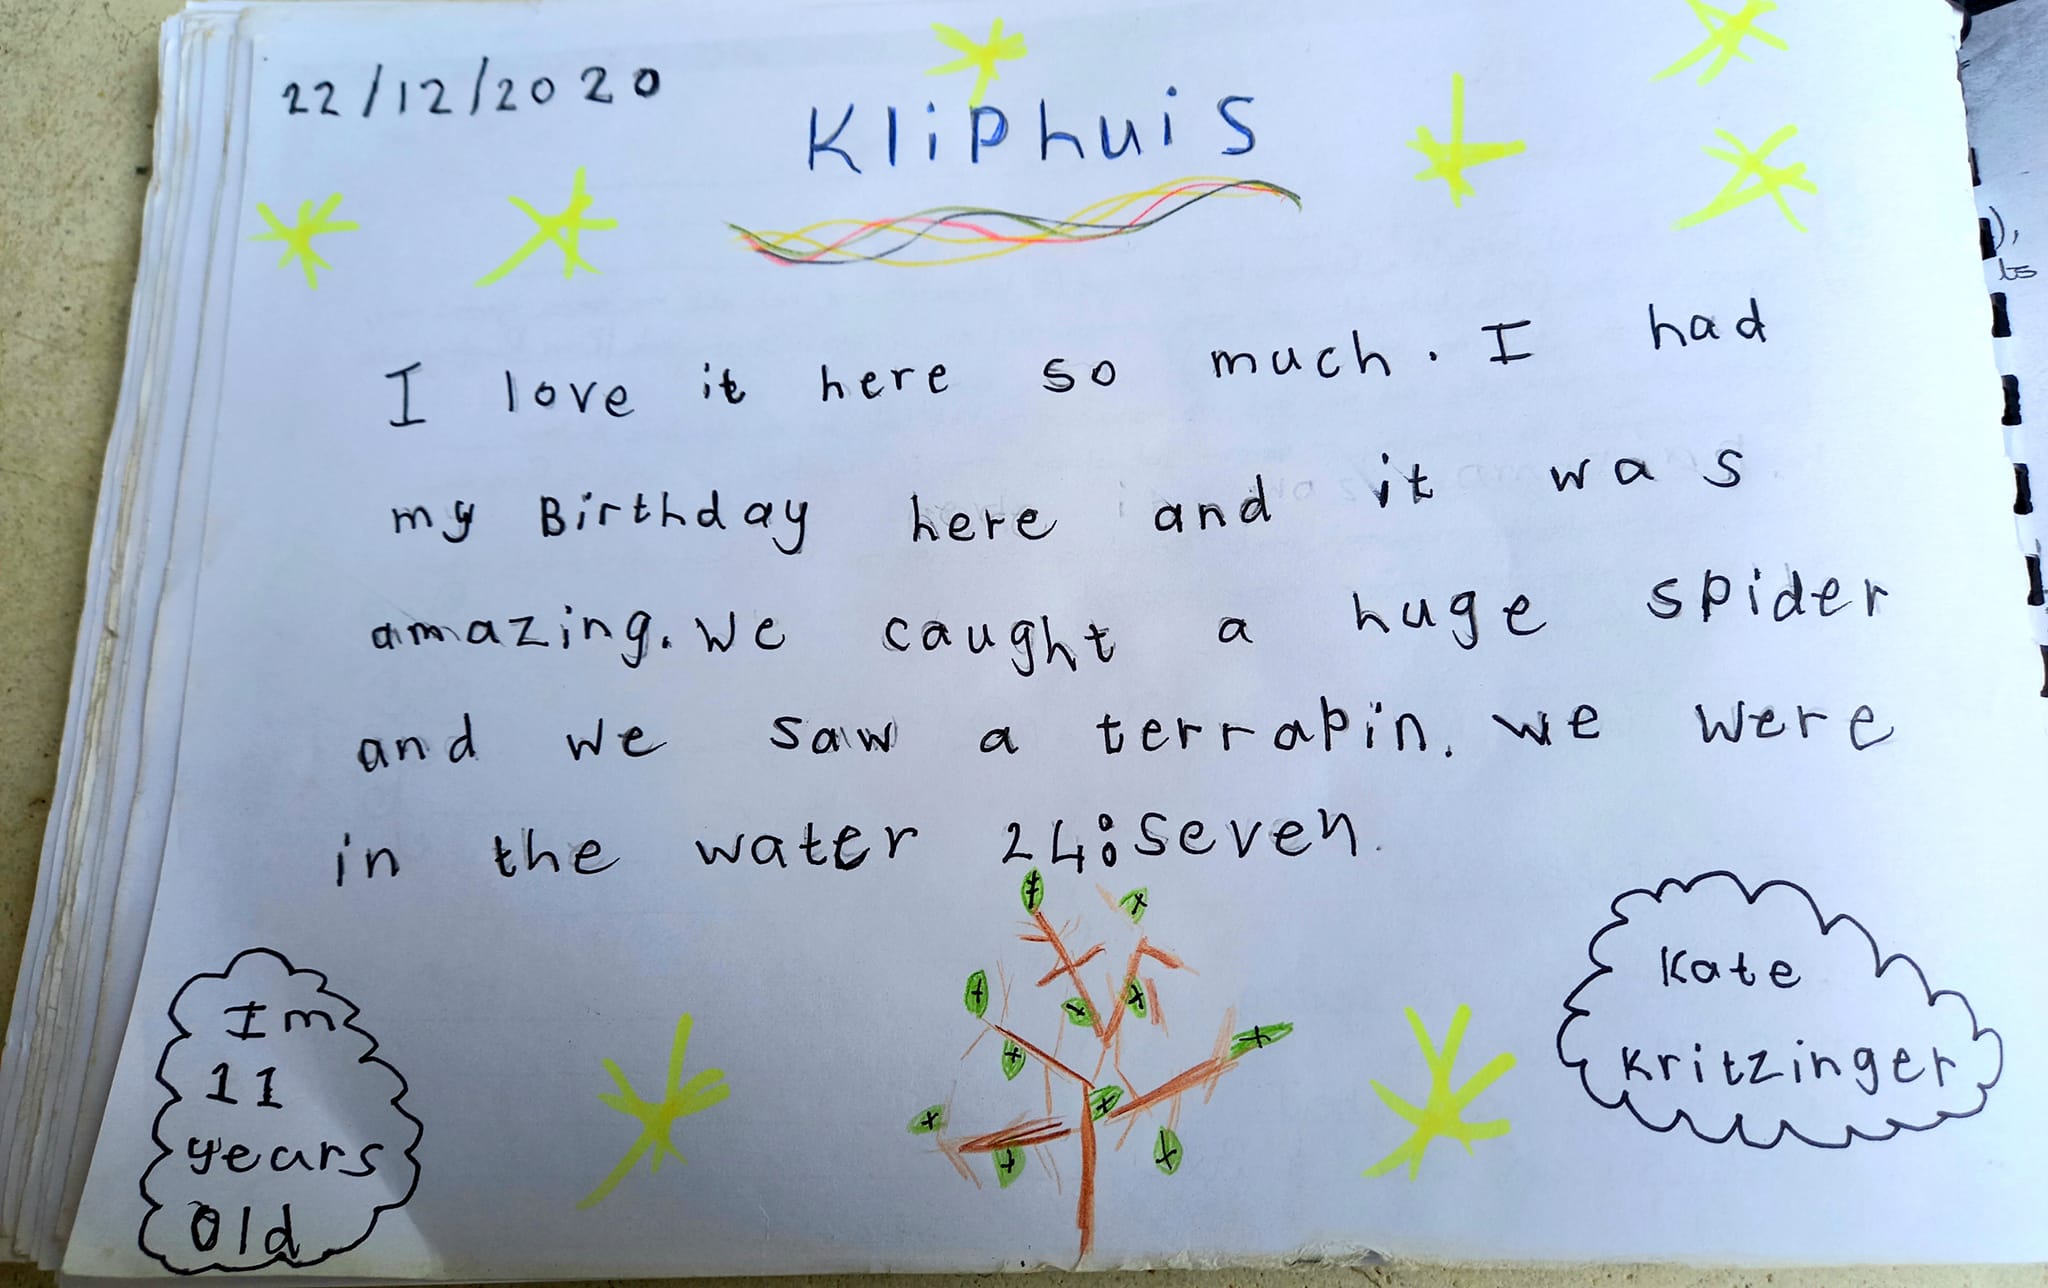 22/12/2020
Kliphuis
I love it here so much. I had
my Birthday here and it was
amazing. We caught a huge spider
and we saw a terrapin. we were
in the water 24:seven.
Im
11
years
Old
Kate
Kritzinger